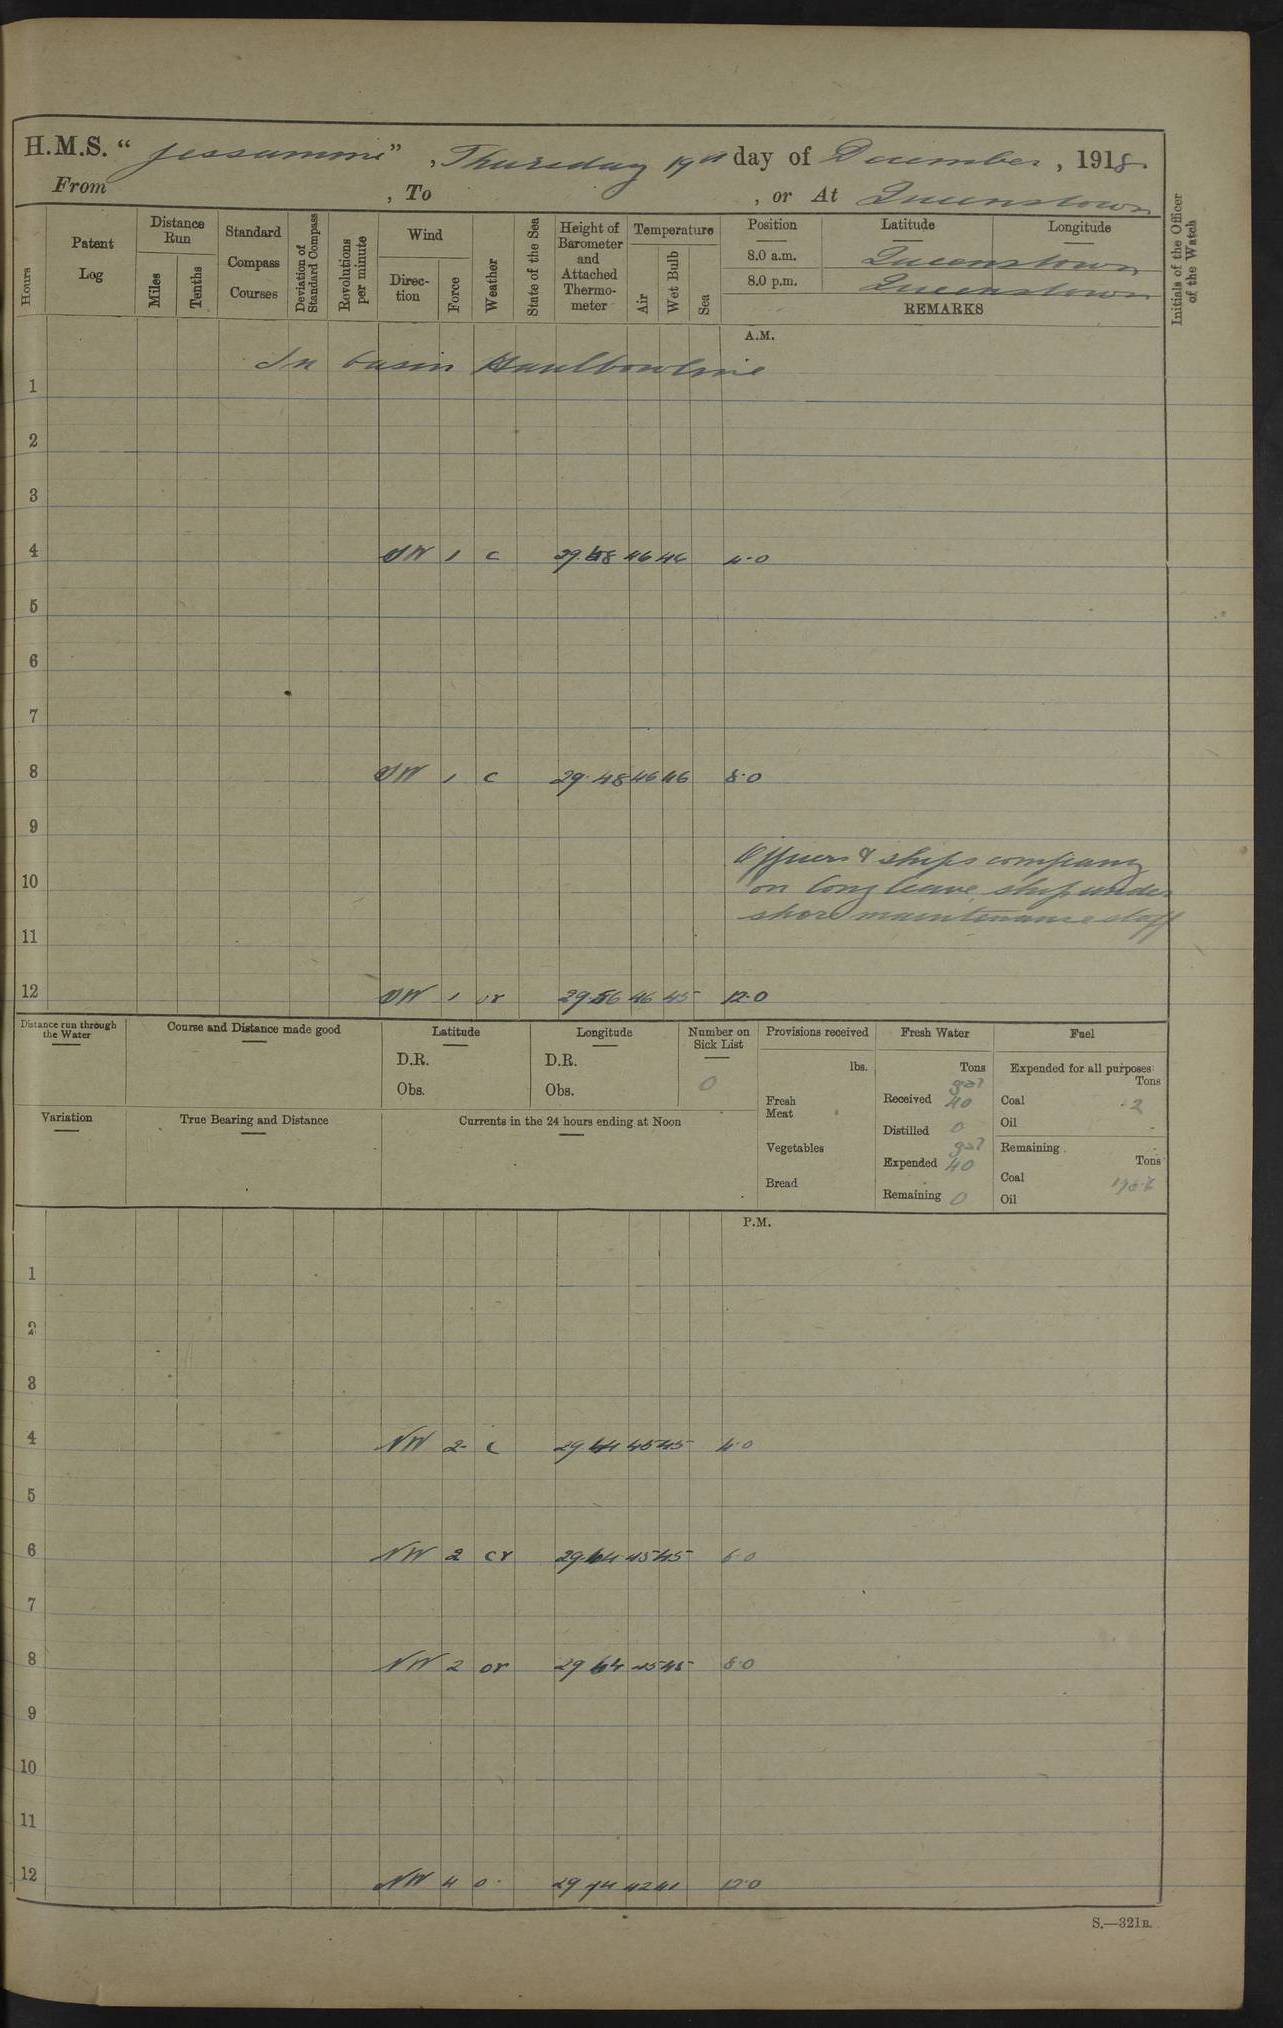 H.M.S. " Jessamine " , Thursday 19th day of December , 1918.
From , To , or At Queenstown
Hours
Patent Log
Distance Run
Miles
Tenths
Standard Compass Courses
Deviation of Standard Compass
Revolutions per minute
Wind
Direction
Force
Weather
State of the Sea
Height of Barometer and Attached Thermometer
Temperature
Air
Wet Bulb
Sea
Position Latitude Longitude
8.0 a.m. Queenstown
8.0 p.m. Queenstown
REMARKS
Initials of the Officer of the Watch
A.M.
In basin Haulbowline
1
2
3
4 SW 1 c 46 46 4.0
5
6
7
8 SW 1 c 29.48 46 46 8.0
9
Officers & ships company
10 on long leave, ship under
shore maintenance staff
11
12 SW 1 or 29.56 46 45 12.0
Distance run through the Water
Course and Distance made good
Latitude
D.R.
Obs.
Longitude
D.R.
Obs.
Number on Sick List
0
Variation
True Bearing and Distance
Currents in the 24 hours ending at Noon
Provisions received
lbs.
Fresh Meat
Vegetables
Bread
Fresh Water
Tons
gal
Received 40
Distilled 0
gal
Expended 40
Remaining 0
Fuel
Expended for all purposes
Tons
Coal .2
Oil
Remaining
Tons
Coal
Oil
P.M.
1
2
3
4 NW 2 c 29 64 45 45 4.0
5
6 NW 2 cr 29.64 45 45 6.0
7
8 NW 2 or 29 64 45 45 8.0
9
10
11
12 NW 4 o 29 74 42 41 12.0
S.—321B.